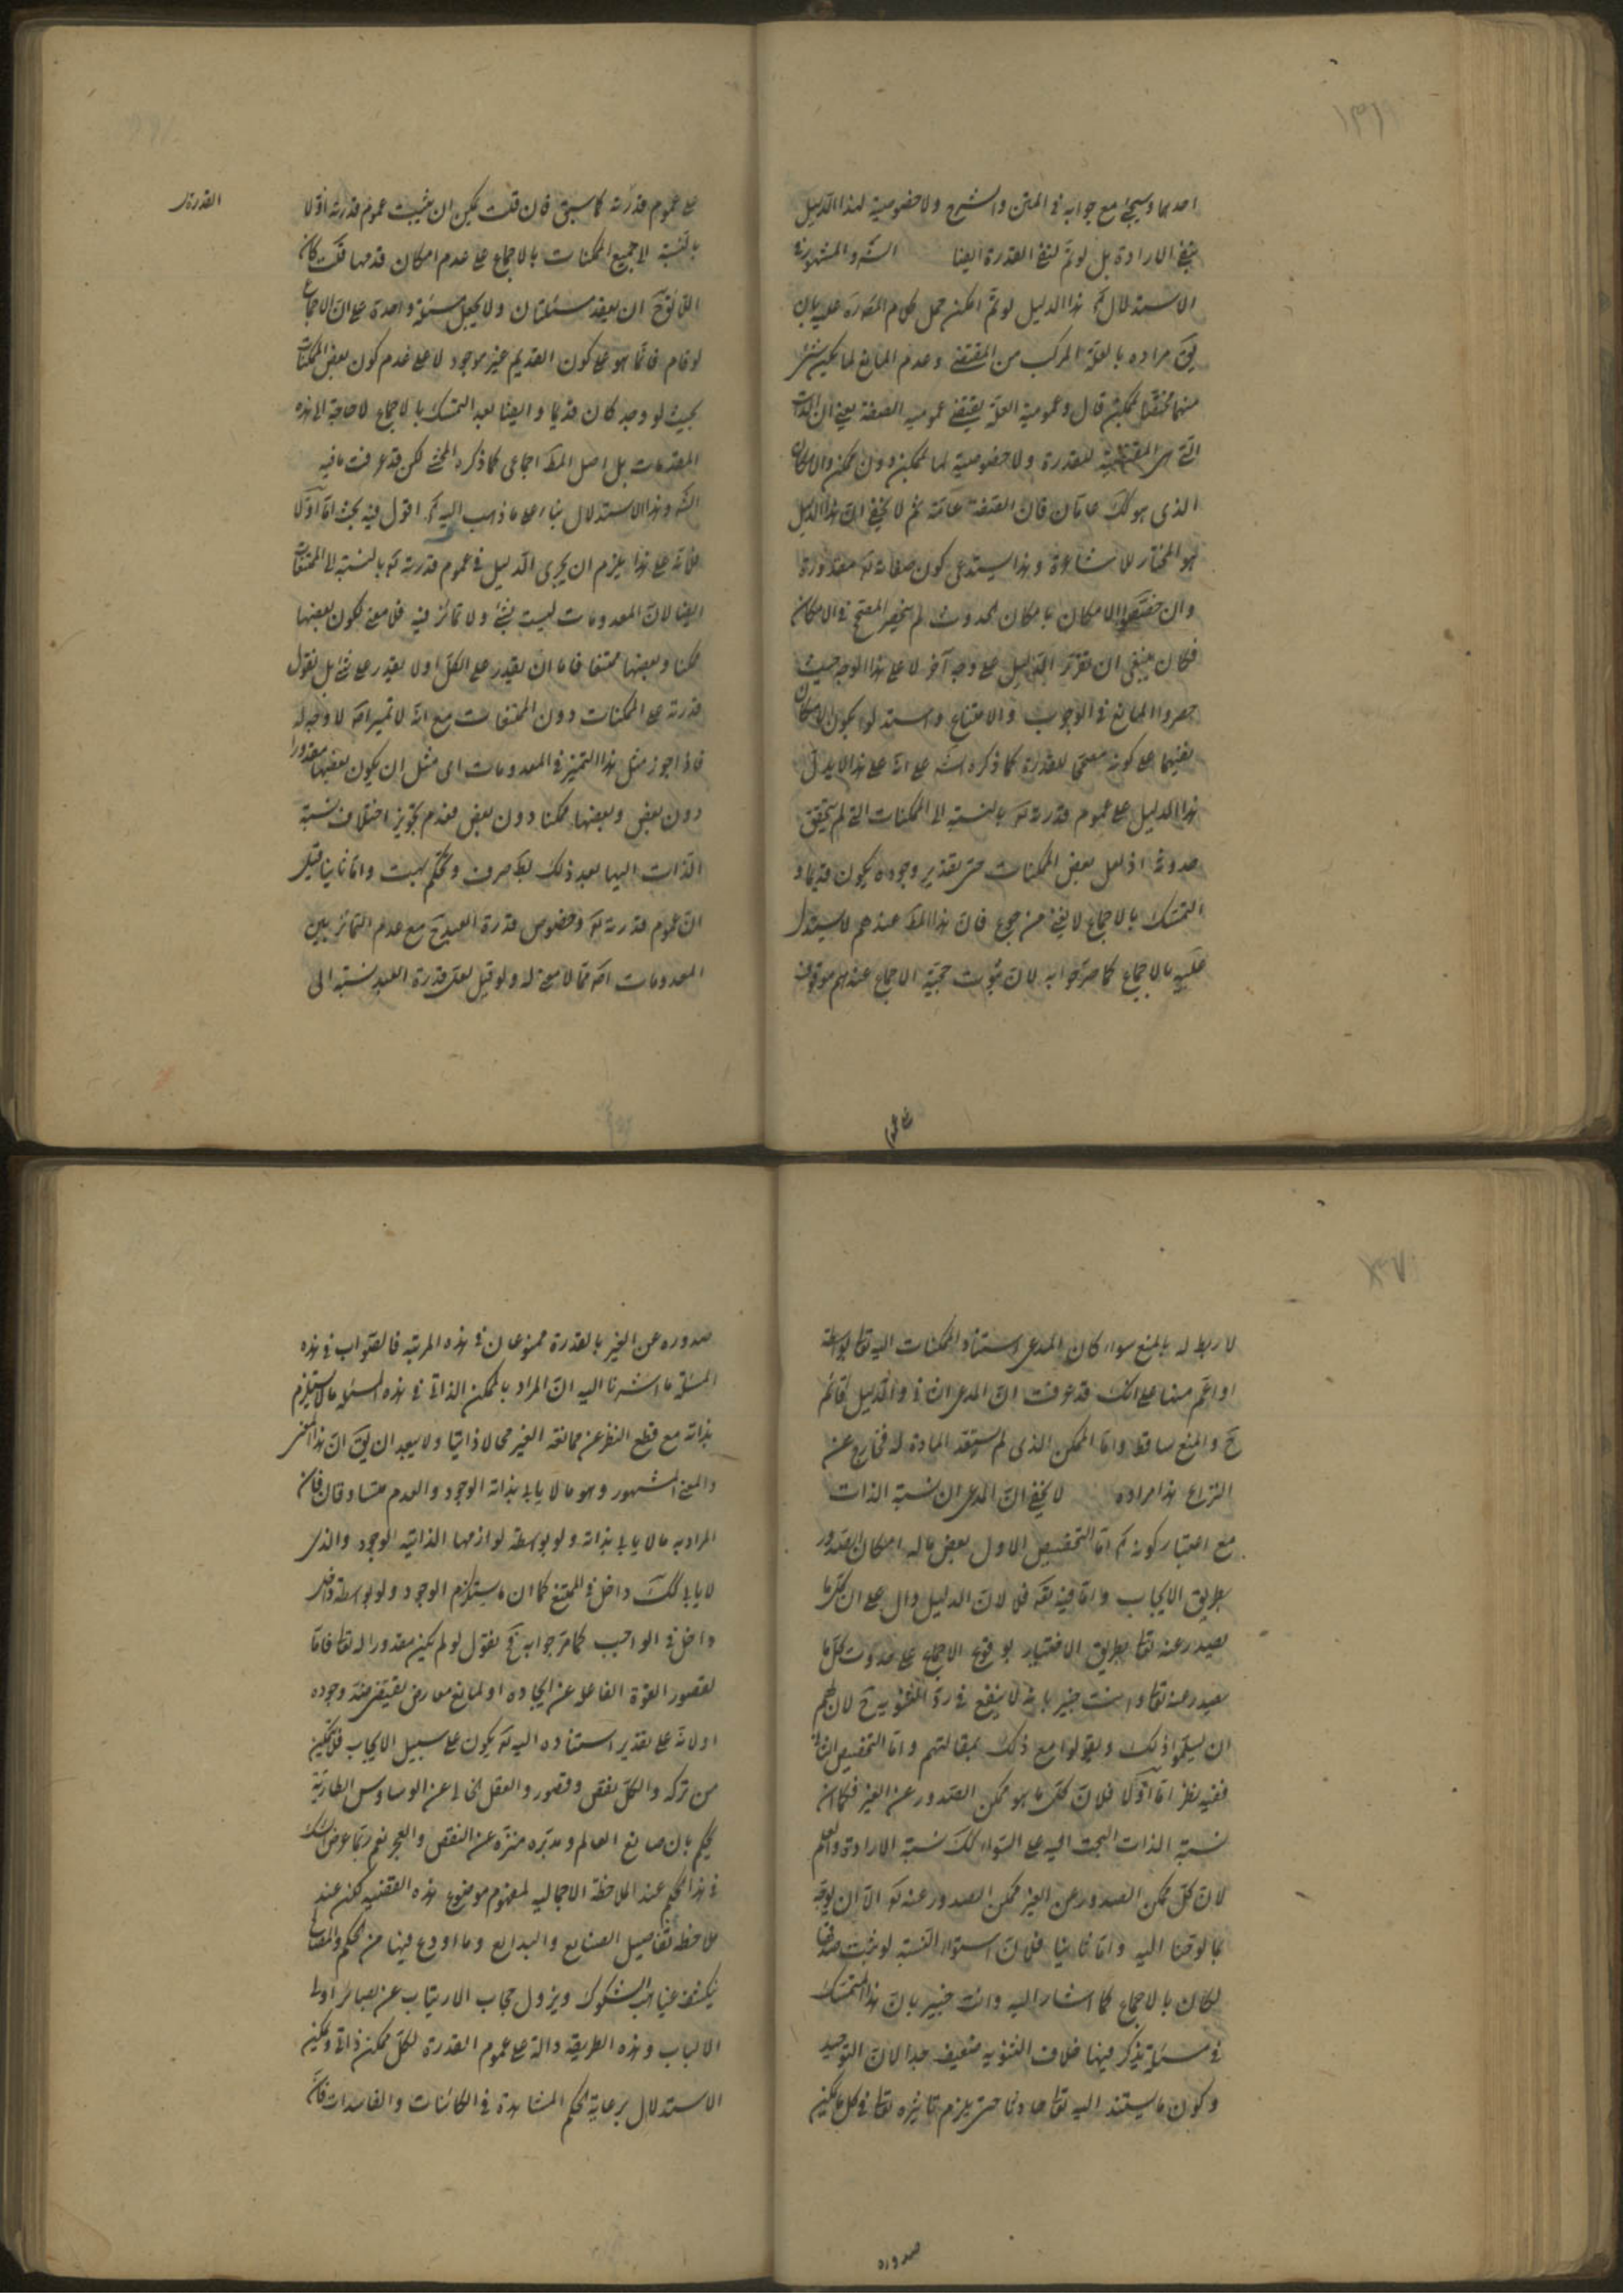 احدهما وسيجئ مع جوابه في المتن والشرح ولا خصوصية لهذا الدليل
بنفي الارادة بل لو تم لنفى القدرة ايضا الشه والمشهور في
الاستدلال هذا الدليل لو تم امكن حمل كلام المص عليه بان
يق مراده بالعلة المركب من المقتضى وعدم المانع لما يكن شئ
منهما مختصا بممكن قال وعمومية العلة يقتضى عمومية الصفة يعني ان الذات
التي هي المقتضية للقدرة ولا خصوصية لها بممكن دون ممكن والامكان
الذى هو كك عامان فان الصفة عامة ثم لا يخفى ان هذا الدليل
هو المختار للاشاعرة وهذا يستدعى كون صفاته تع مقدورة
وان خصصوا الامكان بامكان الحدوث لم ينحصر المصحح في الامكان
فكان ينبغى ان يقرر الدليل على وجه آخر لا على هذا الوجه حيث
حصروا المانع في الوجوب والامتناع واستدلوا بكون الامكان
نفيهما على كونه مصححا للقدرة كما ذكره الشه على انه على هذا لا يدل
هذا الدليل على عموم قدرته تع بالنسبة الى الممكنات التي لم يتحقق
حدوثه اذ لعل بعض الممكنات حتى بتقدير وجوده يكون قديما و
التمسك بالاجماع لا يغنى من جوع فان هذا المط عندهم لا يستدل
عليه بالاجماع كما صرحوا به لان ثبوت حجية الاجماع عندهم موقوف
على عموم
على عموم قدرته كما سبق فان قلت يمكن ان يثبت عموم قدرته اولا
بالنسبة الى جميع الممكنات بالاجماع على عدم امكان قدمها قلت كان
اللائق ح ان يعقد مسئلتان ولا يجعل مسئلة واحدة على ان الاجماع
لو قام فانما هو على كون القديم غير موجود لا على عدم كون بعض الممكنات
بحيث لو وجد كان قديما وايضا بعد التمسك بالاجماع لا حاجة الى هذه
المقدمات بل اصل المط اجماعى كما ذكره المحشى لكن قد عرفت ما فيه
الشه وهذا الاستدلال بناء على ما ذهب اليه اقول فيه بحث اما اولا
فلانه على هذا يلزم ان يجرى الدليل في عموم قدرته تع بالنسبة الى الممتنعات
ايضا لان المعدومات ليست بشئ ولا تمايز فيه فلا معنى لكون بعضها
ممكنا وبعضها ممتنعا فاما ان يقدر على الكل او لا يقدر على شئ بل نقول
قدرته على الممكنات دون الممتنعات مع انه لا تميز اصلا لا وجه له
فاذا جوز مثل هذا التميز في المعدومات اى مثل ان يكون بعضها مقدورا
دون بعض وبعضها ممكنا دون بعض فعدم تجويز اختلاف نسبة
الذات اليها بعد ذلك غلط صرف وتحكم بحت واما ثانيا فقيل
ان عموم قدرته تع وخصوص قدرة العبد ح مع عدم التمايز بين
المعدومات اصلا مما لا معنى له ولو قيل لعل قدرة العبد نسبة الى
القدرة
لا ربط له بالمنع سواء كان المدعى استناد الممكنات اليه تعالى بواسطة
او اعم منها على انك قد عرفت ان المدعى الثاني والدليل قائم
ح والمنع ساقط واما الممكن الذى لم يستعد المادة له فخارج عن
النزاع هذا مراده لا يخفى ان المدعى ان نسبة الذات
مع اعتبار كونه اما التخصيص الاول ببعض ما له امكان الصدور
بطريق الايجاب واما فيه بقة فلا لان الدليل دال على ان كل ما
يصدر عنه تعالى بطريق الاختيار بوقوع الاجماع على حدوث كل ما
يصدر عنه تعالى وانت خبير بانه لا ينفع في رد الثنوية ح لان لهم
ان يسلموا ذلك ويقولوا مع ذلك بمقالتهم واما التخصيص الثاني
ففيه نظر اما اولا فلان كل ما هو ممكن الصدور عن الغير فكما ان
نسبة الذات البحت اليه على السواء كك نسبة الارادة والعلم
لان كل ممكن الصدور عن الغير ممكن الصدور عنه تع الا ان يوجه
بما لوحنا اليه واما ثانيا فلان استواء النسبة لو يثبت صدقها
لكان بالاجماع كما اشار اليه وانت خبير بان هذا التمسك
في مسئلة يذكر فيها خلاف الثنوية ضعيف جدا لان التوحيد
وكون ما يستند اليه تعالى حادثا حتى يلزم تاثيره تعالى في كل ممكن
صدوره
صدوره عن الغير بالقدرة ممنوعان في هذه المرتبة فالصواب في هذه
المسئلة ما اشرنا اليه ان المراد بالممكن الذاتى في هذه المسئلة ما لا يستلزم
بذاته مع قطع النظر عن ممانعة الغير محالا ذاتيا ولا يبعد ان يق ان هذا المعنى
والمعنى المشهور وهو ما لا يابى بذاته الوجود والعدم متساوقان فان
المراد به ما لا يابى بذاته ولو بواسطة لوازمها الذاتية الوجود والذى
لا يابى كك داخل في الممتنع كما ان ما يستلزم الوجود ولو بواسطة داخل
داخل في الواجب كما مر جوابه ح نقول لو لم يكن مقدورا له تعالى فاما
لقصور القوة الفاعل عن ايجاده او لمانع معارض يقتضى ضد وجوده
او لانه على تقدير استناده اليه تع يكون على سبيل الايجاب فلا يمكن
من تركه والكل نقص وقصور والعقل الخالى عن الوساوس الطارية
يحكم بان صانع العالم ومدبره منزه عن النقص والعجز نعم ربما عرض الشك
في هذا الحكم عند الملاحظة الاجمالية لمفهوم موضوع هذه القضية لكن عند
ملاحظة تفاصيل الصنايع والبدايع وما اودع فيها من الحكم والمصالح
ينكشف غياهب الشكوك ويزول حجاب الارتياب عن بصائر اولى
الالباب وهذه الطريقة دالة على عموم القدرة لكل ممكن ذاتى ويمكن
الاستدلال برعاية الحكم المشاهدة في الكائنات والفاسدات فانه